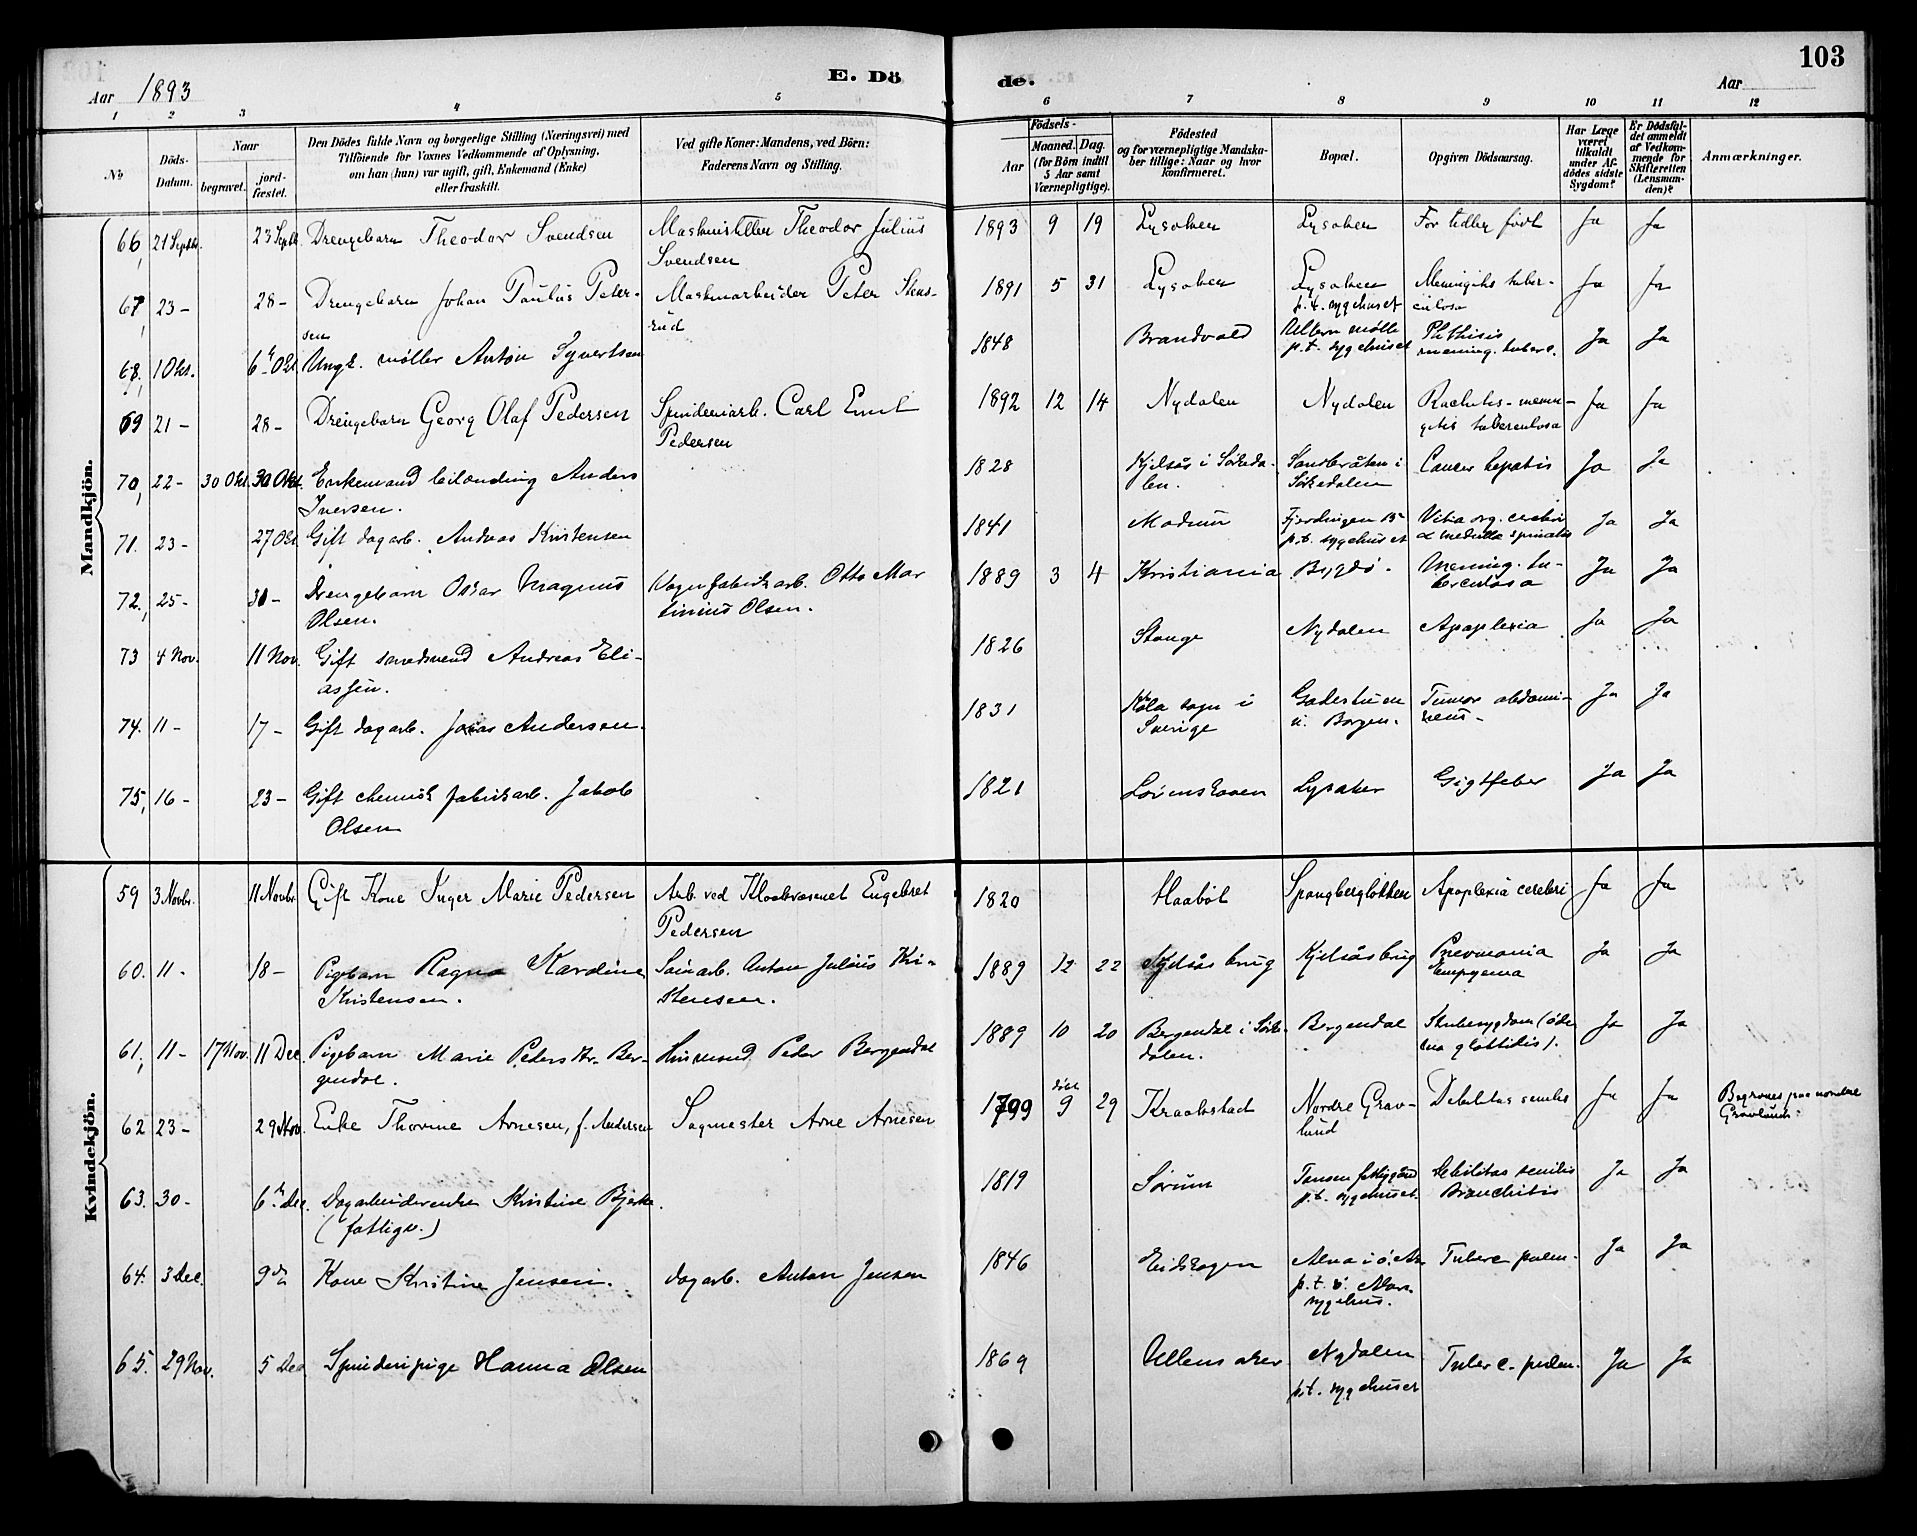 103
Aar 1893 E. Dö
de. Aar
1 2 3 4 5
6 7 8 9 10 11 12
No
Döds-
Datum.
Naar
begravet. jord-
fæstet.
Den Dödes fulde Navn og borgerlige Stilling (Næringsvei) med
Tilföiende for Voxnes Vedkommende af Oplysning,
om han (hun) var ugift, gift, Enkemand (Enke)
eller fraskilt.
Ved gifte Koner: Mandens, ved Börn:
Faderens Navn og Stilling.
Födsels-
Aar Maaned. Dag.
(for Börn indtil
5 Aar samt
Værnepligtige).
Födested
og for værnepligtige Mandska-
ber tillige: Naar og hvor
konfirmeret.
Bopæl.
Opgiven Dödsaarsag.
Har Læge
været
tilkaldt
under Af-
dödes sidste
Sygdom?
Er Dödsfal-
det anmeldt
af Vedkom-
mende for
Skifteretten
(Lensman-
den)?
Anmærkninger.
Mandkjön.
66, 21 Septbr. 23 Septbr. Drengebarn Theodor Svendsen Maskinist Theodor Julius
Svendsen
1893 9 19 Lysaker Lysaker For tidlig født Ja Ja
67, 23- 28- Drengebarn Johan Paulus Peter-
sen
Maskinarbeider Peter Stens-
rud
1891 5 31 Lysaker Lysaker
p.t. sygehuset
Meningitis tuber-
culosa
Ja Ja
68, 1 Okt. 6 Okt. Ungk. møller Anton Syvertsen
1848 Brandvold Ullern mølle
p.t. sygehuset
Phthisis
mening. tuberc.
Ja Ja
69 21- 28- Drengebarn Georg Olaf Pedersen Spinderiarb. Carl Emil
Pedersen
1892 12 14 Nydalen Nydalen Rachitis- menin-
gitis tuberculosa
Ja Ja
70, 22- 30 Okt. 30 Okt. Enkemand leilænding Anders
Iversen.
1828 Kjelsås i Sørkeda-
len.
Sandbråten i
Sørkedalen
Cancer hepatis Ja Ja
71. 23- 27 Okt Gift dagarb. Andreas Kristensen
1841 Modum Fjerdingen
p.t. sygehuset
Vitia org. cerebri
& medulla spinalis
Ja Ja
72, 25- 31- Drengebarn Oskar Magnus
Olsen.
Vognfabrikarb. Otto Mar
tinius Olsen.
1889 3 4 Kristiania Bygdø. Mening. tu-
berculosa
Ja Ja
73 4 Nov. 11 Nov. Gift Andreas Eli-
assen.
1826 Stange Nydalen Apoplexia Ja Ja
74. 11- 17- Gift dagarb. Jonas Anderson.
1831 Køla sogn i
Sverige
Gadestuen
u. Borgen.
Tumor abdomi-
nens-
Ja Ja
75, 16- 23- Gift chemisk fabrikarb. Jakob
Olsen
1821 Lørenskogen Lysaker Gigtfeber Ja Ja
Kvindekjön.
59 3 Novbr. 11 Novbr. Gift Kone Inger Marie Pedersen Arb. ved Kloakvæsenet Engebret
Pedersen
1820 Haabøl Spangbergløkken Apoplexia cerebri Ja Ja
60. 11- 18- Pigebarn Ragna Karoline
Kristensen.
Anton Julius Kri-
stensen.
1889 12 22 Kjelsås brug Kjelsås brug Pnevmonia
Empyema
Ja Ja
61, 11- 17 Nov. 11 Dec Pigebarn Marie Pedersdtr. Ber-
gendal.
Husmand Peder Bergendal
1889 10 20 Bergendal i Sørke-
dalen.
Bergendal Strubesygdom (øde
ma glottidis).
Ja Ja
62 23- 29 Nov. Enke Thorine Arnesen, f. Andersen Sagmester Arne Arnesen
1799 døbt
9 29 Kraakstad Nordre Grav-
lund
Debilitas senilis Ja Ja Begraves paa nordre
Gravlund.
63. 30- 6 Dec. Dagarbeiderenke Kristine Bjerke.
(fattigv.)
1819 Sørum Tonsen fattiggård
p.t. sygehuset.
Debilitas senilis
Bronchitis
Ja Ja
64. 3 Dec. 9 Kone Kristine Jensen. dagarb. Anton Jensen
1846 Eidskogen Alna i ø. Ak.
p.t. v. Aker
sygehus.
Tuberc pulm. Ja Ja
65. 29 Nov. 5 Dec Spinderipige Hanna Olsen
1869 Ullensaker Nydalen
p.t. sygehuset
Tuberc. pulm. Ja Ja